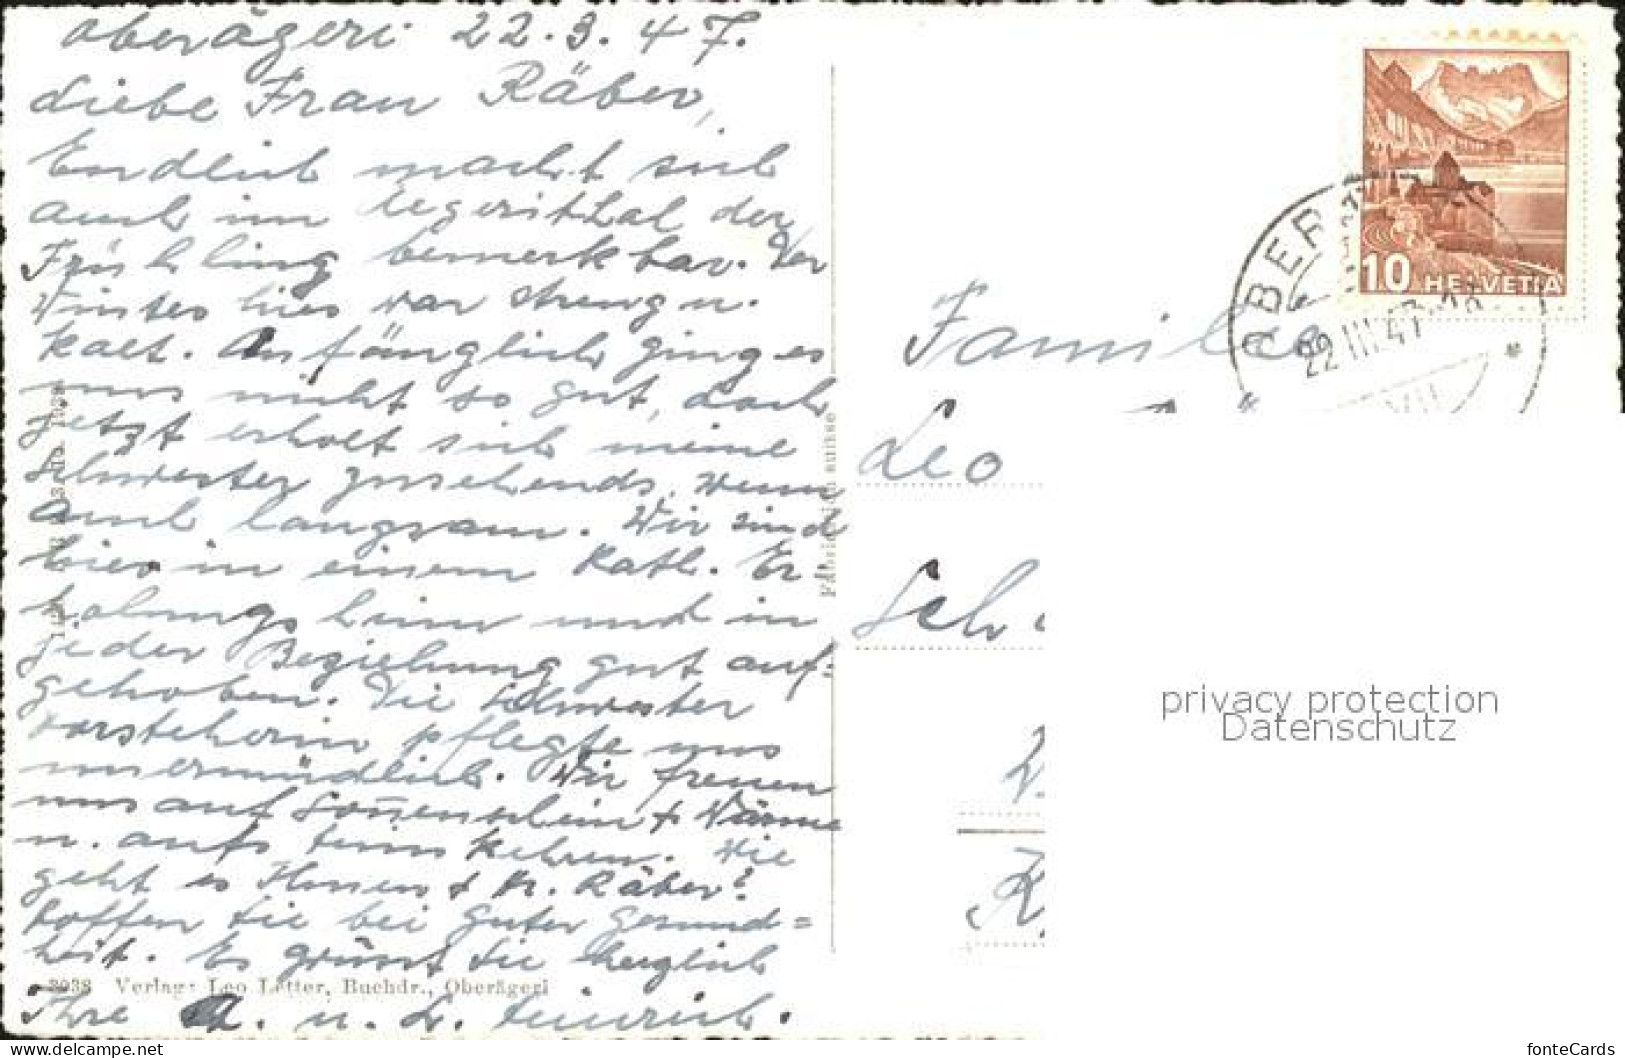 Oberägeri 22.3.47.
Liebe Frau Räber,
Endlich macht sich
auch im Aegerithal der
Frühling bemerkbar. Der
Winter hier war streng u.
kalt. Anfänglich ging es
uns nicht so gut, doch
jetzt erholt sich meine
Schwester zusehends, wenn
auch langsam. Wir sind
hier in einem Kath. Er-
holungsheim und in
jeder Beziehung gut auf-
gehoben. Die Schwester
vorsteherin pflegte uns
unermüdlich. Wir freuen
uns auf Sonnenschein + Wärme
u. aufs heimkehren. Wie
geht es Ihnen + Hr. Räber?
hoffen Sie bei guter Gesund=
heit. Es grüsst Sie herzlich
3038 Verlag: Leo Letter, Buchdr., Oberägeri
Ihre A. u. L. Heinrich.
Fabrication suisse
10 HELVETIA
22 III 47
Familie
Leo
privacy protection
Datenschutz
https://www.delcampe.net
fonteCards